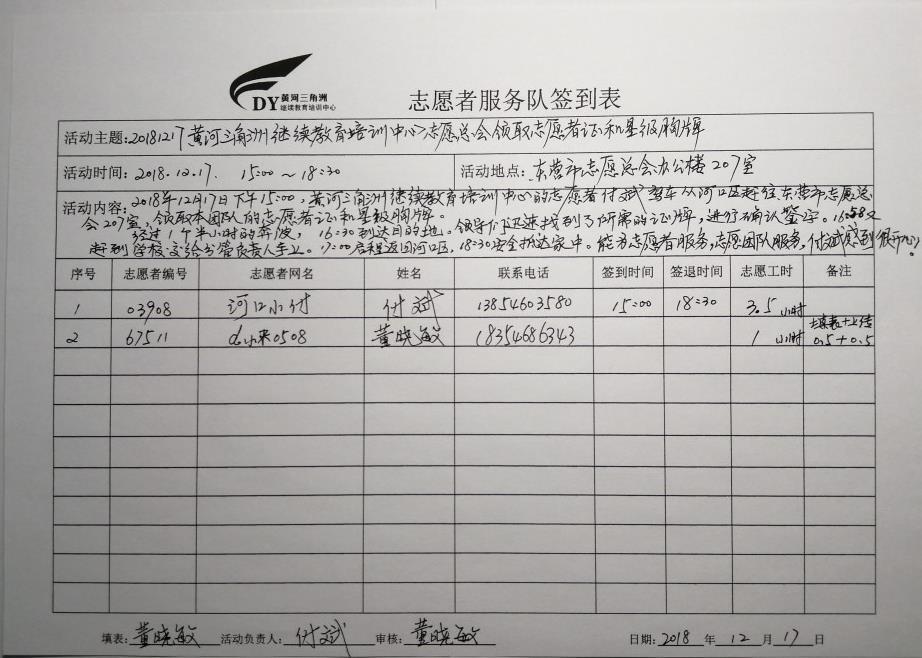 DY黄河三角洲
继续教育培训中心
志愿者服务队签到表
活动主题:20181217黄河三角洲继续教育培训中心志愿总会领取志愿者证和星级胸牌
活动时间: 2018.12.17. 15:00~18:30 活动地点: 东营市志愿总会办公楼207室
活动内容: 2018年12月17日下午15:00,黄河三角洲继续教育培训中心的志愿者付斌驾车从河口区赶往东营市志愿总
会207室,领取本团队的志愿者证和星级胸牌。
经过1个半小时的奔波,16:30到达目的地。领导们迅速找到了所需的证牌,进行了确认签字。16:58又
赶到学校交给分管负责人手上。17:00启程返回河口区,18:30安全抵达家中。能为志愿者服务,志愿团队服务,付斌感到很开心
序号 志愿者编号 志愿者网名 姓名 联系电话 签到时间 签退时间 志愿工时 备注
1 03908 河口小付 付斌 13854603580 15:00 18:30 3.5小时
2 67511 d小米0508 董晓敏 18354686343 1小时 填表+上传
0.5+0.5
填表: 董晓敏 活动负责人: 付斌 审核: 董晓敏 日期: 2018 年 12 月 17 日